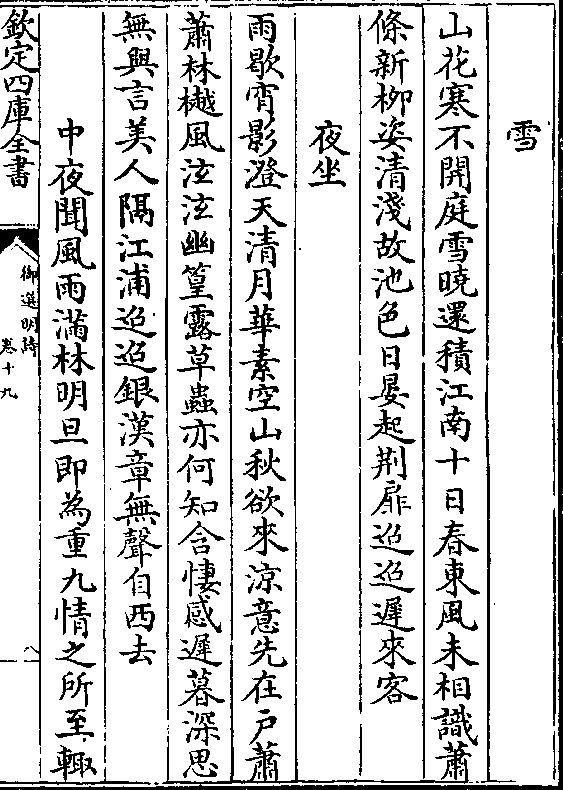 雪
山花寒不開庭雪曉還積江南十日春東風未相識蕭
條新柳姿清淺故池色日晏起荆扉迢迢遲來客
夜坐
雨歇宵影澄天清月華素空山秋欲來涼意先在戸蕭
蕭林樾風泫泫幽篁露草蟲亦何知含悽感遲暮深思
無與言美人隔江浦迢迢銀漢章無聲自西去
中夜聞風雨滿林明旦即為重九情之所至輙
欽定四庫全書
御選明詩
卷十九
八